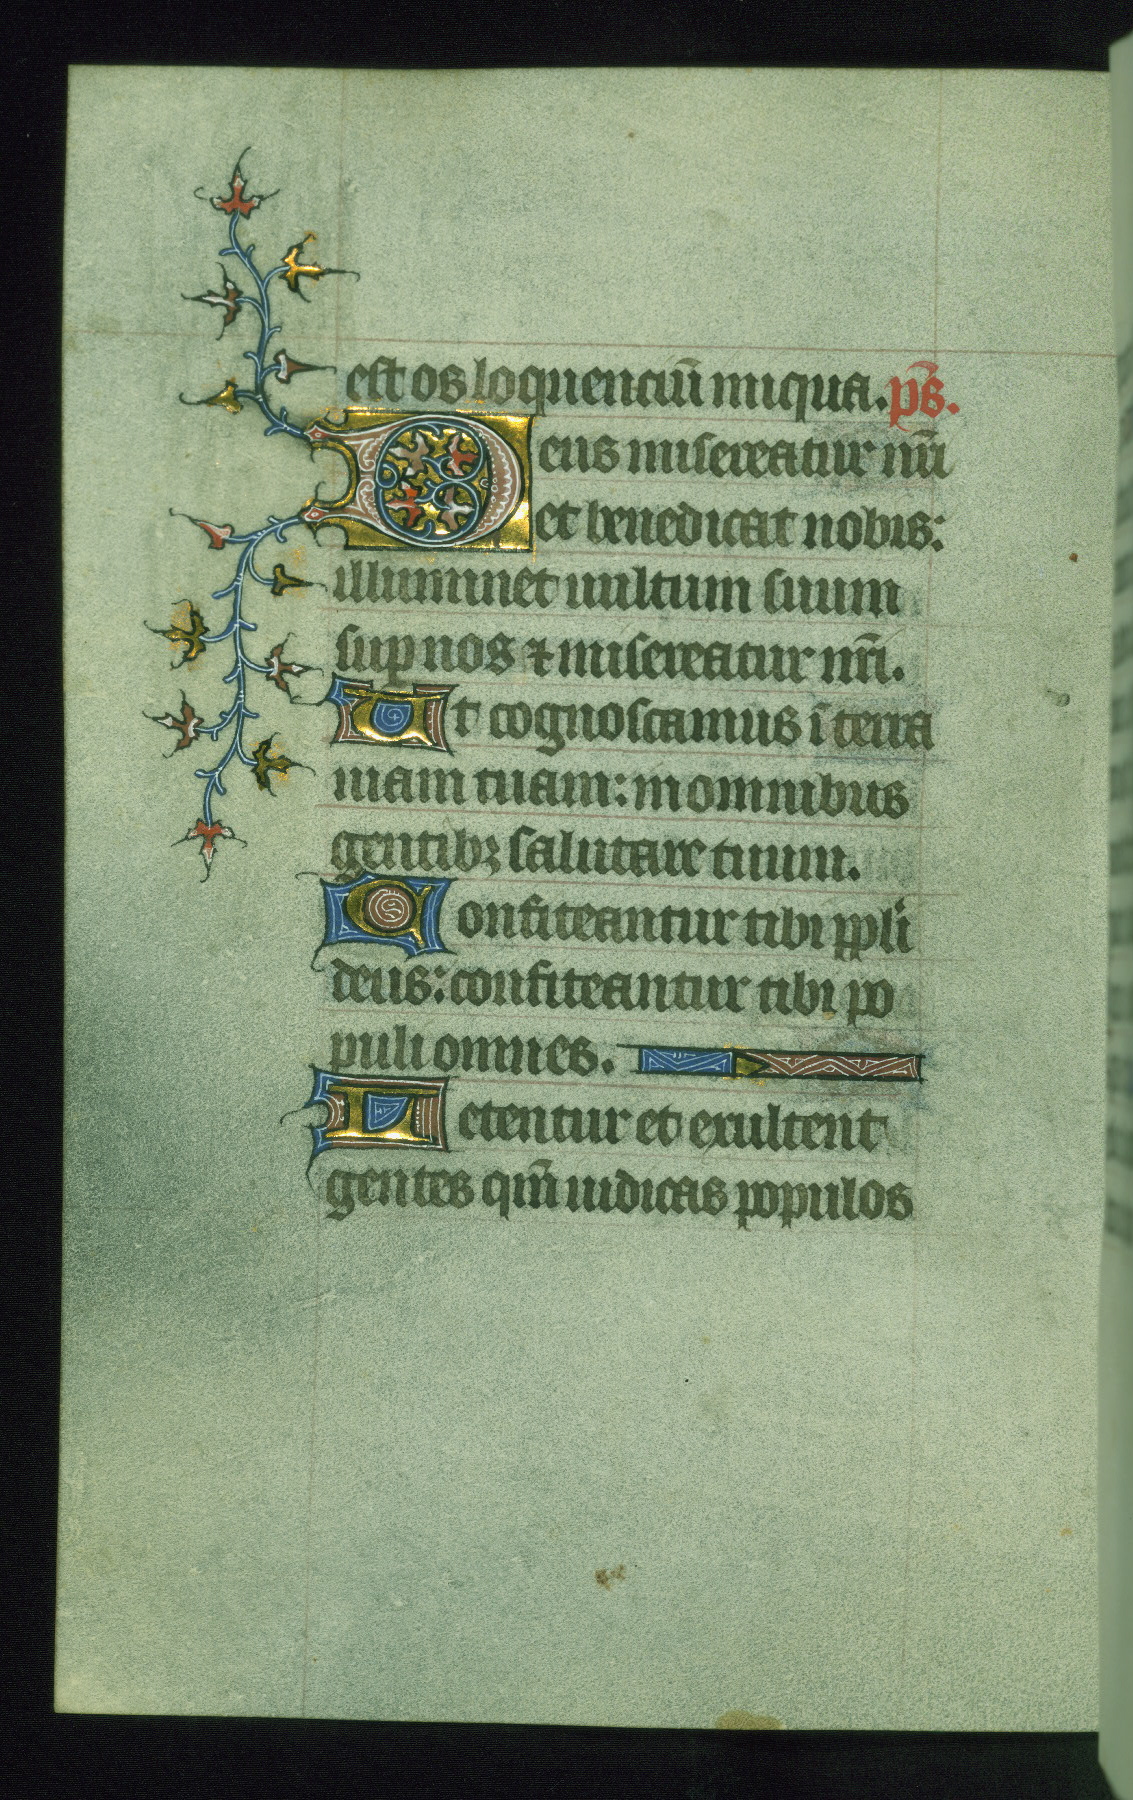 est os loquenciū iniqua. p̄s.
Deus misereatur nr̄i
et benedicat nobis:
illuminet uultum suum
sup nos ⁊ misereatur nr̄i.
Ut cognoscamus ī terra
uiam tuam: in omnibus
gentibꝫ salutare tuum.
Confiteantur tibi ppli
deus: confiteantur tibi po
puli omnes.
Letentur et exultent
gentes qm̄ iudicas populos